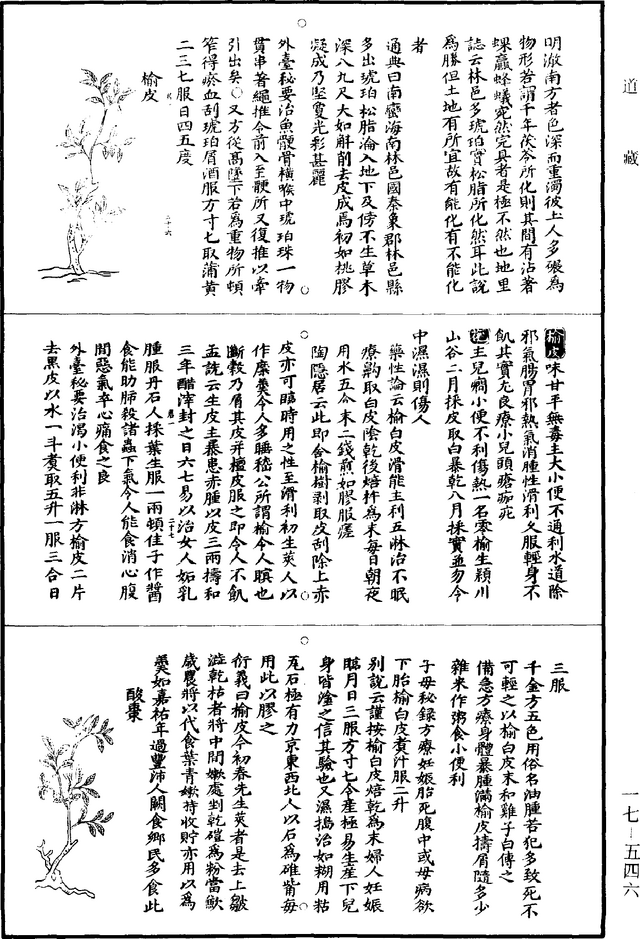 道藏
明澈南方者色深而重濁彼土人多碾為
物形若謂千年茯苓所化則其間有沾著
蜾蠃蜂蟻宛然完具者是極不然也地里
誌云林邑多琥珀實松脂所化然耳此說
為勝但土地有所宜故有能化有不能化
者
通典曰南蠻海南林邑國秦象郡林邑縣
多出琥珀松脂淪入地下及傍不生草木
深八九尺大如斛削去皮成焉初如桃膠
凝成乃堅夏光彩甚麗
外臺秘要治魚骾骨橫喉中琥珀珠一物
貫串著繩推令前入至骾所又復推以牽
引出矣○又方從高墮下若為重物所頓
笮得瘀血刮琥珀屑酒服方寸匕取蒲黃
二三匕服日四五度
榆皮
三十六
榆皮味甘平無毒主大小便不通利水道除
邪氣腸胃邪熱氣消腫性滑利久服輕身不
飢其實尤良療小兒頭瘡痂疕
花主兒癇小便不利傷熱一名零榆生潁川
山谷二月採皮取白暴乾八月採實並勿令
中濕濕則傷人
藥性論云榆白皮滑能主利五淋治不眠
療齁取白皮陰乾後焙杵為末每日朝夜
用水五合末二錢煎如膠服瘥
陶隱居云此即今榆樹剝取皮刮除上赤
皮亦可臨時用之性至滑利初生莢人以
作糜羹令人多睡嵇公所謂榆令人瞑也
斷穀乃屑其皮并檀皮服之即令人不飢
孟詵云生皮主暴患赤腫以皮三兩擣和
三年醋滓封之日六七易以治女人妬乳
卷一 三十七
腫服丹石人採葉生服一兩頓佳子作醬
食能助肺殺諸蟲下氣令人能食消心腹
間惡氣卒心痛食之良
外臺秘要治渴小便利非淋方榆皮二片
去黑皮以水一斗煮取五升一服三合日
三服
千金方五色用俗名油腫若犯多致死不
可輕之以榆白皮末和雞子白傅之
備急方療身體暴腫滿榆皮擣屑隨多少
雜米作粥食小便利
子母秘錄方療妊娠胎死腹中或母病欲
下胎榆白皮煮汁服二升
別說云謹按榆白皮焙乾為末婦人妊娠
臨月日三服方寸匕令產極易生產下兒
身皆塗之信其驗也又濕搗治如糊用粘
瓦石極有力京東西北人以石為碓觜每
用此以膠之
衍義曰榆皮今初春先生莢者是去上皺
澁乾枯者將中間嫩處剉乾磑為粉當歉
歲農將以代食葉青嫩時收貯亦用以為
羹如嘉祐年過豐沛人闕食鄉民多食此
酸棗
一七-五四六